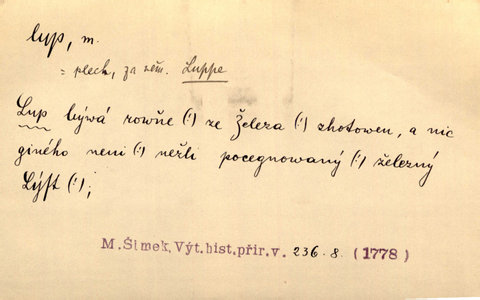 lup, m.
= plech, za něm. Luppe
Lup bývá rowňe (!) ze Železa (!) zhotowen, a nic
giného neni (!) nežli pocegnowaný (!) železný
Lýst (!);
M. Šimek, Výt. hist. přír. v. 236. 8. (1778)